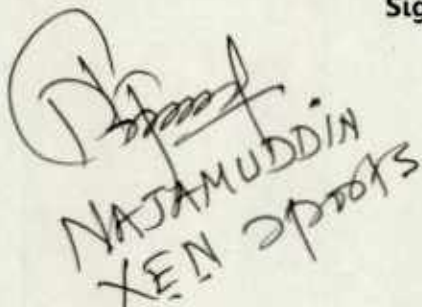 Sig
NAJAMUDDIN
XEN